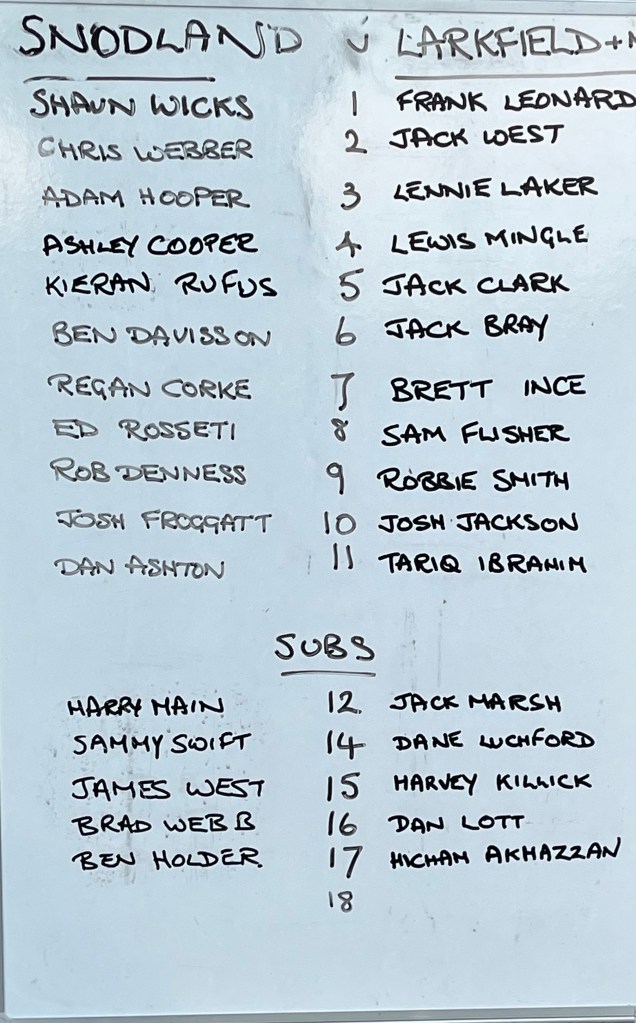 SNODLAND v LARKFIELD +
SHAUN WICKS 1 FRANK LEONARD
CHRIS WEBBER 2 JACK WEST
ADAM HOOPER 3 LENNIE LAKER
ASHLEY COOPER 4 LEWIS MINGLE
KIERAN RUFUS 5 JACK CLARK
BEN DAVISSON 6 JACK BRAY
REGAN CORKE 7 BRETT INCE
ED ROSSETI 8 SAM FLISHER
ROB DENNESS 9 ROBBIE SMITH
JOSH FROGGATT 10 JOSH JACKSON
DAN ASHTON 11 TARIQ IBRAHIM
SUBS
HARRY MAIN 12 JACK MARSH
SAMMY SWIFT 14 DANE LUCHFORD
JAMES WEST 15 HARVEY KILLICK
BRAD WEBB 16 DAN LOTT
BEN HOLDER 17 HICHAM AKHAZZAN
18